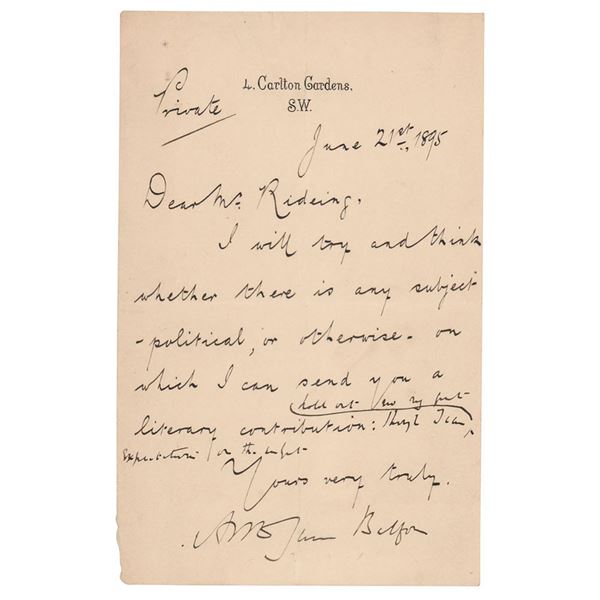 4. Carlton Gardens,
S.W.
Private
June 21st, 1895
Dear Mr. Rideing,
I will try and think
whether there is any subject
- political, or otherwise - on
which I can send you a
literary contribution: though I can
hold out
expectations on the subject
Yours very truly.
Balfour